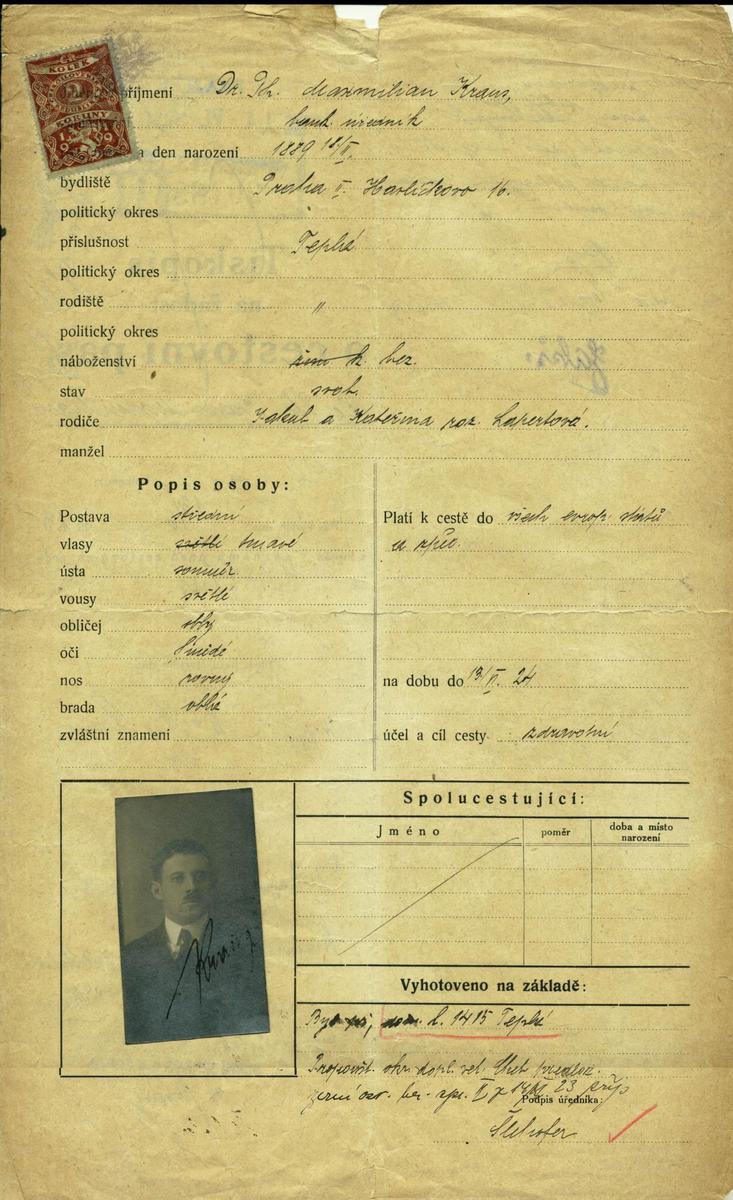 KOLEK
KORUNY
1919
příjmení Dr. Ph. Maxmilian Kraus,
bank. úředník
a den narození 1889 18/V.
bydliště Praha II. Havlíčkovo 16.
politický okres
příslušnost Teplá
politický okres
rodiště "
politický okres
náboženství řím k. bez.
stav svob.
rodiče Jakub a Kateřina roz. Lapertová.
manžel
Popis osoby:
Postava střední
vlasy světlé tmavé
ústa souměr.
vousy světlé
obličej oblý
oči šnědé
nos rovný
brada oblá
zvláštní znamení
Platí k cestě do všech evrop. států
a zpět.
na dobu do 13/VI. 24
účel a cíl cesty zdravotní
Spolucestující:
Jméno poměr doba a místo narození
Vyhotoveno na základě:
dom. l. 1415 Teplá
23
Podpis úředníka: